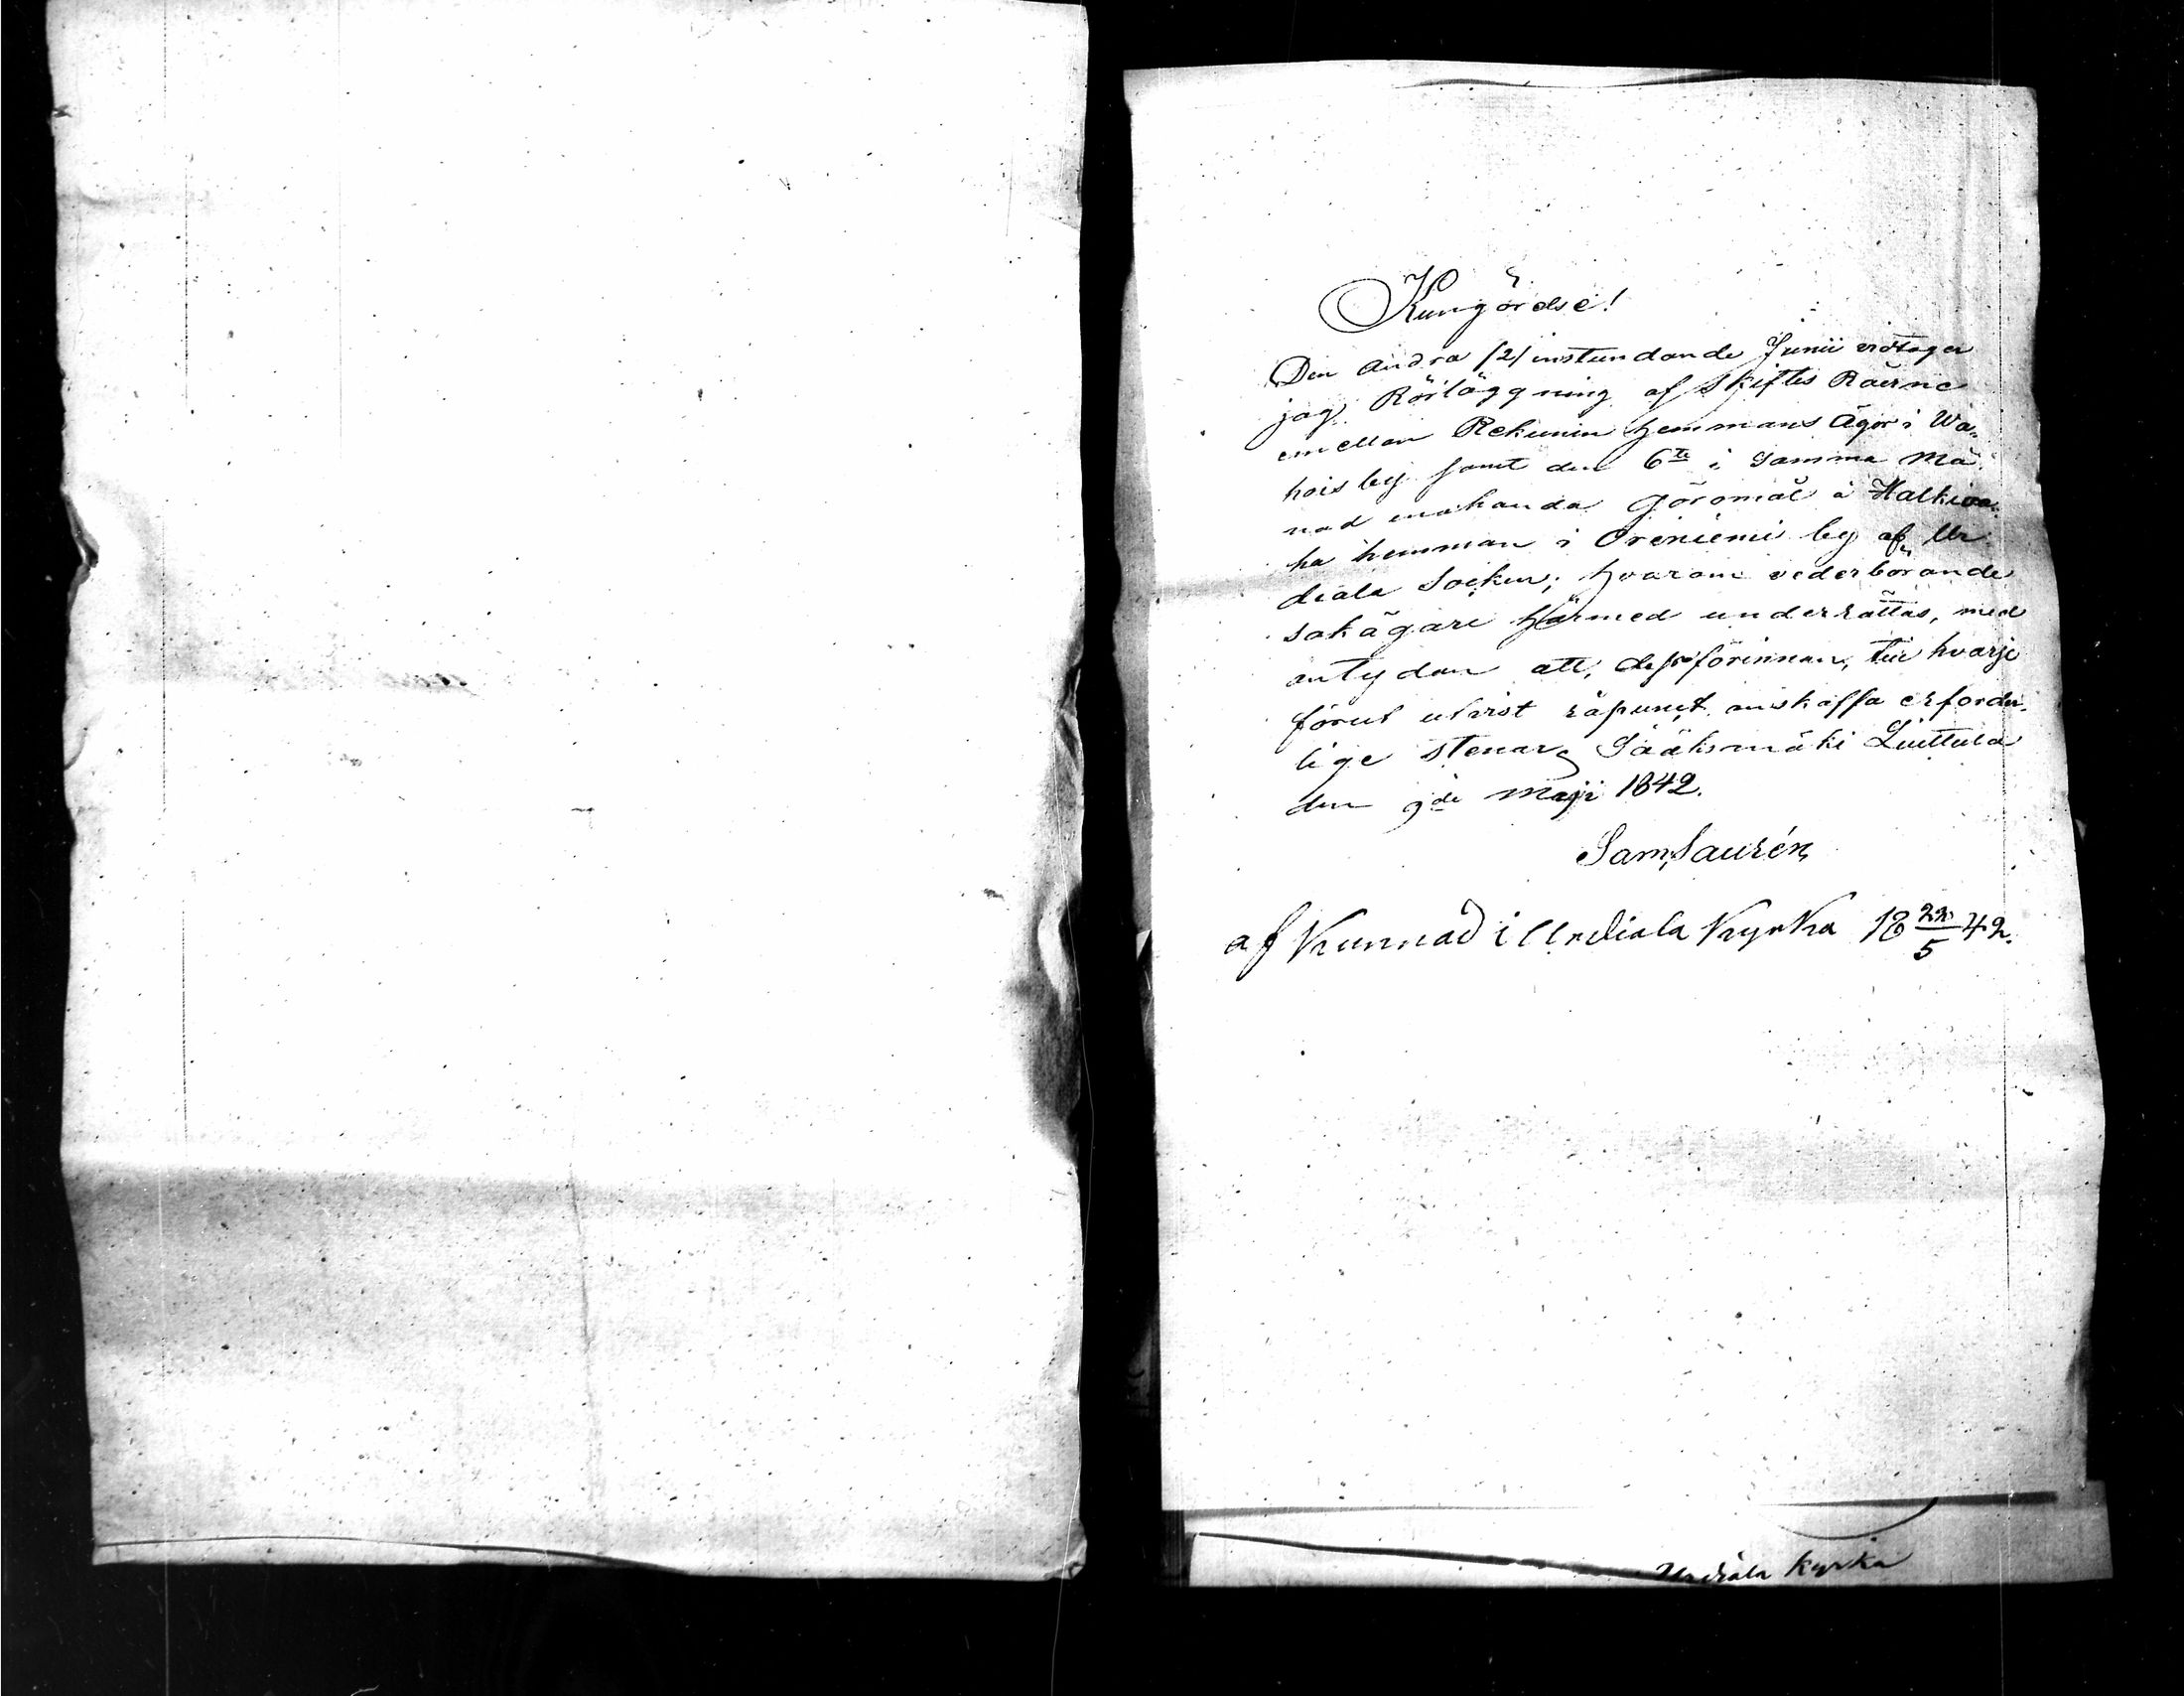 Kungörelse!
Den andra /2/ instundande Junii vidtager
jag Rörläggning af Skiftes Råerne
emellan Rekunin hemmans Ägor i Wa„
hois by samt den 6te i samma Må„
nad enahanda göromål å Halkiva„
ha hemman i Oriniemi by af Ur„
diala Socken; hvarom vederbörande
sakägare härmed underrättas, med
antydan att, dessförinnan, till hvarje
förut utvist råpunct anskaffa erforder„
lige stenar, Sääksmäki Liuttula
den 9de Maji 1842.
Sam, Saurén,
af Kunnad i Urdiala Kyrka 18 22/5 42.
Urdiala Kyrka